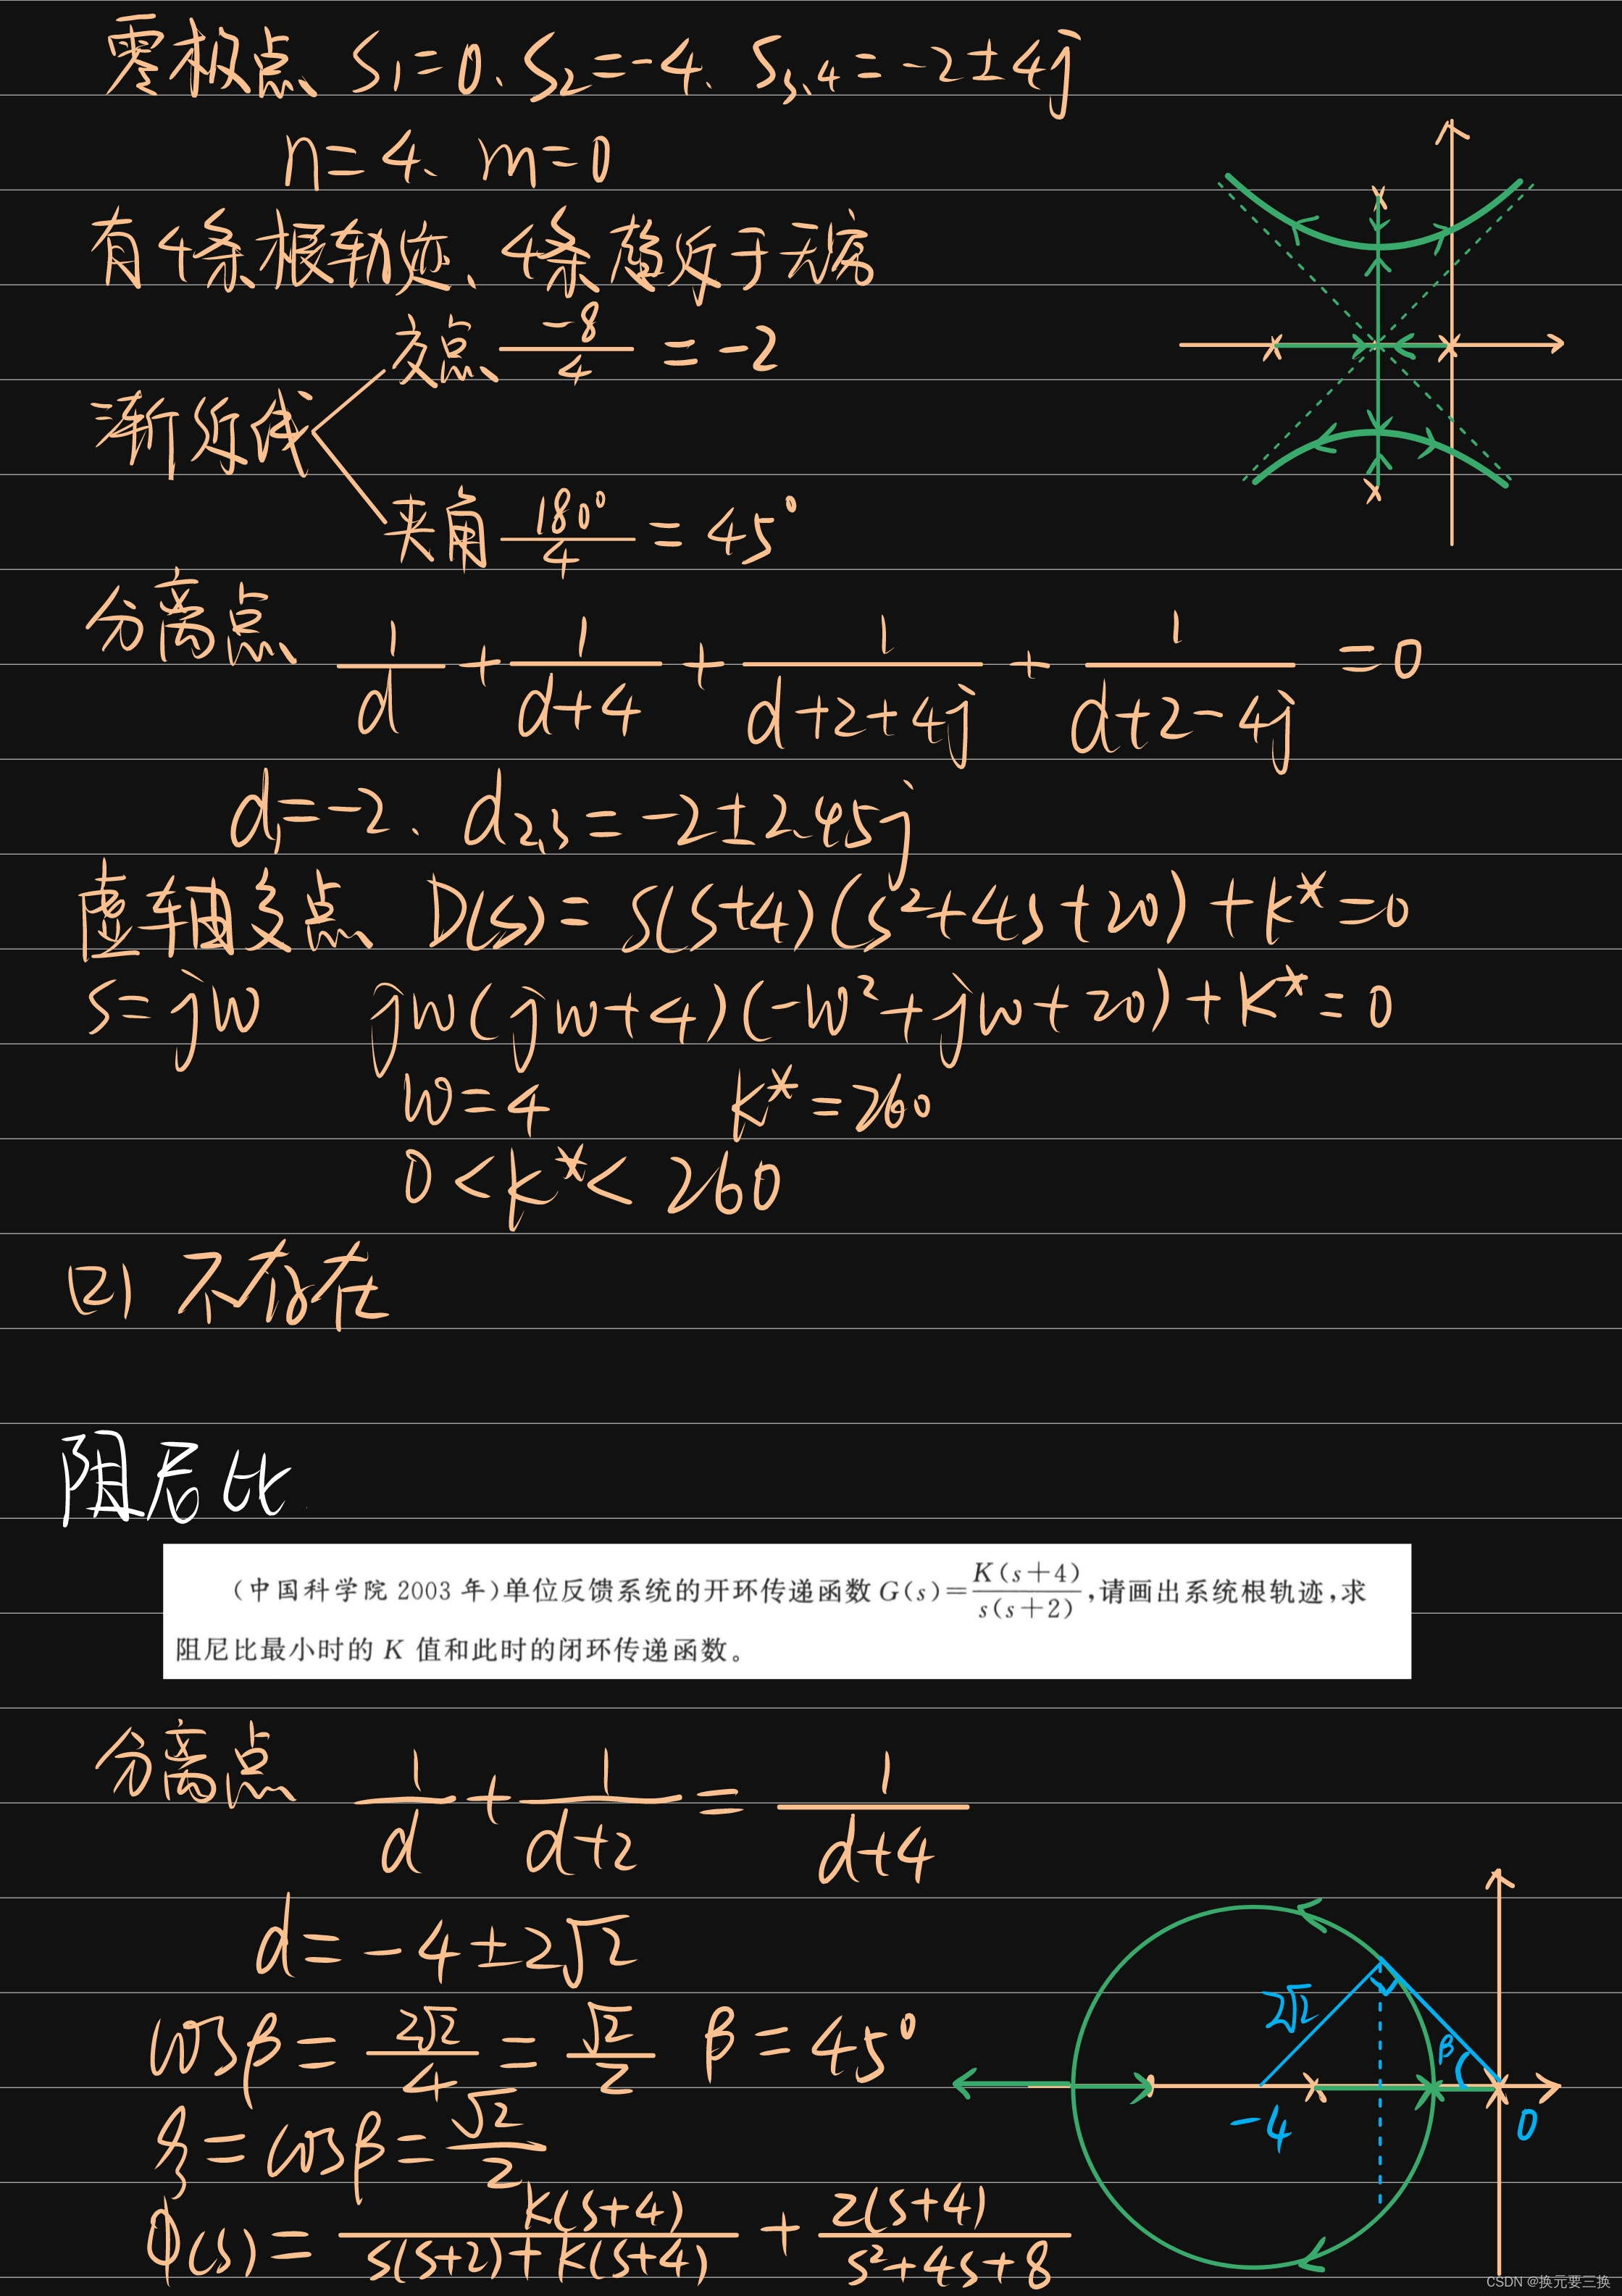 零极点、S₁=0、S₂=-4、S₃、₄=-2±4j
n=4、m=0
有4条根轨迹、4条趋近于无穷
渐近线
交点 -8/4 = -2
夹角 180°/4 = 45°
分离点 1/d + 1/(d+4) + 1/(d+2+4j) + 1/(d+2-4j) = 0
d₁=-2、d₂,₃=-2±2.45j
虚轴交点 D(s)= s(s+4)(s²+4s+20)+k*=0
s=jw jw(jw+4)(-w²+jw+20)+k*=0
w=4 k*=260
0<k*<260
(2) 不存在
阻尼比
(中国科学院 2003 年)单位反馈系统的开环传递函数 G(s)=K(s+4)/s(s+2),请画出系统根轨迹,求
阻尼比最小时的 K 值和此时的闭环传递函数。
分离点 1/d + 1/(d+2) = 1/(d+4)
d=-4±2√2
cosβ= 2√2/4 = √2/2 β=45°
ξ=cosβ= √2/2
ϕ(s)= k(s+4)/(s(s+2)+k(s+4)) + 2(s+4)/(s²+4s+8)
2√2
β
-4
0
CSDN @换元要三换